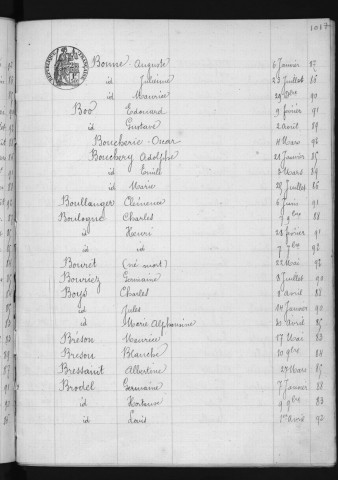 1017
Bonne Auguste 6 Janvier 92
id Julienne 23 Juillet 86
id Maurice 29 90
Boo Edouard 9 février 91
id Gustave 2 Août 89
Boucherie Oscar 11 Mars 92
Bouchery Adolphe 21 Janvier 85
id Emile 8 Mars 89
id Marie 29 Juillet 86
Boullanger Clémence 6 Juin 91
Boulogne Charles 9bre 88
id Henri 28 février 91
id id 7 7bre 92
Bouret (né mort) 22 Mai 92
Bouriez Germaine 8 Juillet 90
Boys Charles 8 Avril 83
id Jules 14 Janvier 90
id Marie Alphonsine 30 Avril 85
Bréson Maurice 17 Mai 83
Breson Blanche 10 9bre 84
Bressaint Albertine 27 Mars 85
Brodel Germaine 7 Janvier 88
id Hortense 9 9bre 83
id Louis 1er Avril 92